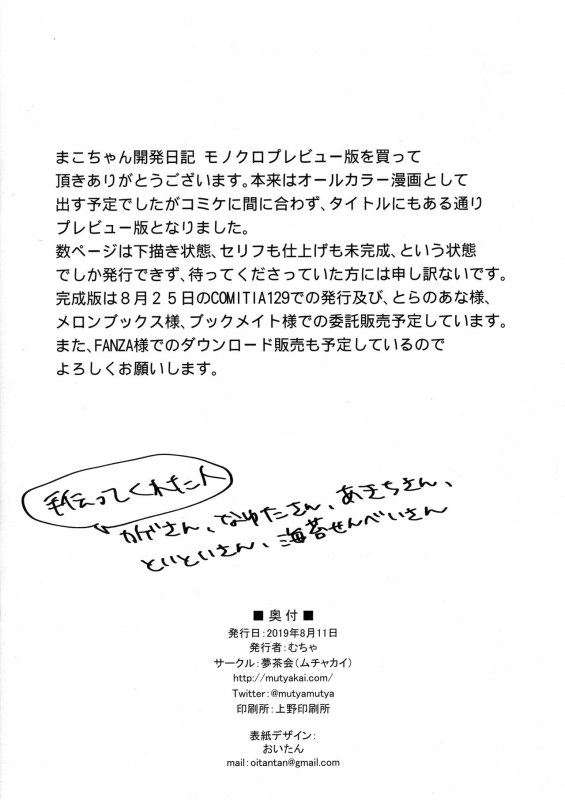 まこちゃん開発日記 モノクロプレビュー版を買って
頂きありがとうございます。本来はオールカラー漫画として
出す予定でしたがコミケに間に合わず、タイトルにもある通り
プレビュー版となりました。
数ページは下描き状態、セリフも仕上げも未完成、という状態
でしか発行できず、待ってくださっていた方には申し訳ないです。
完成版は8月25日のCOMITIA129での発行及び、とらのあな様、
メロンブックス様、ブックメイト様での委託販売予定しています。
また、FANZA様でのダウンロード販売も予定しているので
よろしくお願いします。
手伝ってくれた人
カゲさん、なゆたさん、あきちさん、
といといさん、海苔せんべいさん
■ 奥付 ■
発行日:2019年8月11日
発行者:むちゃ
サークル:夢茶会(ムチャカイ)
http://mutyakai.com/
Twitter:@mutyamutya
印刷所:上野印刷所
表紙デザイン:
おいたん
mail:oitantan@gmail.com